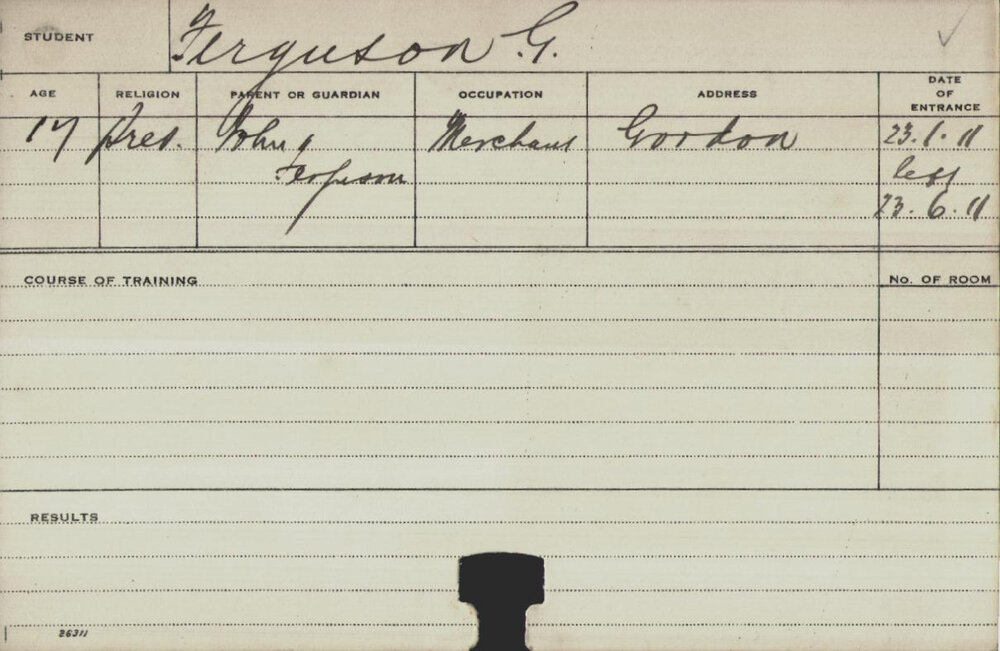 STUDENT Ferguson G.
AGE RELIGION PARENT OR GUARDIAN OCCUPATION ADDRESS DATE OF ENTRANCE
17 Pres. John Merchant Gordon 23.1.11
Ferguson left
23.6.11
COURSE OF TRAINING No. OF ROOM
RESULTS
26311